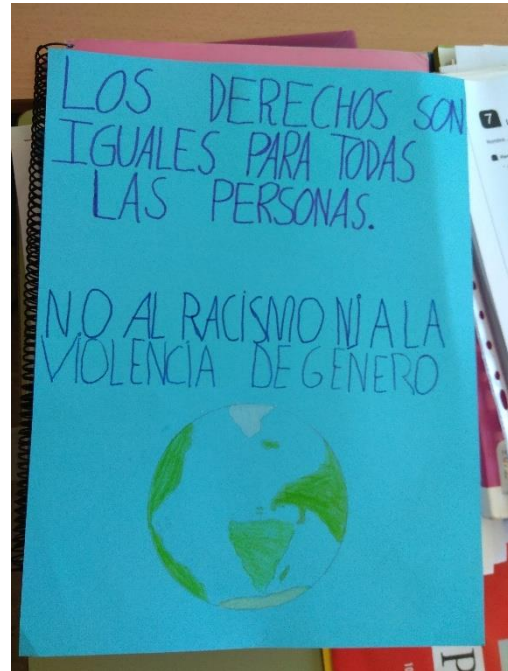 LOS DERECHOS SON
IGUALES PARA TODAS
LAS PERSONAS.
NO AL RACISMO NI A LA
VIOLENCIA DE GÉNERO
7
P